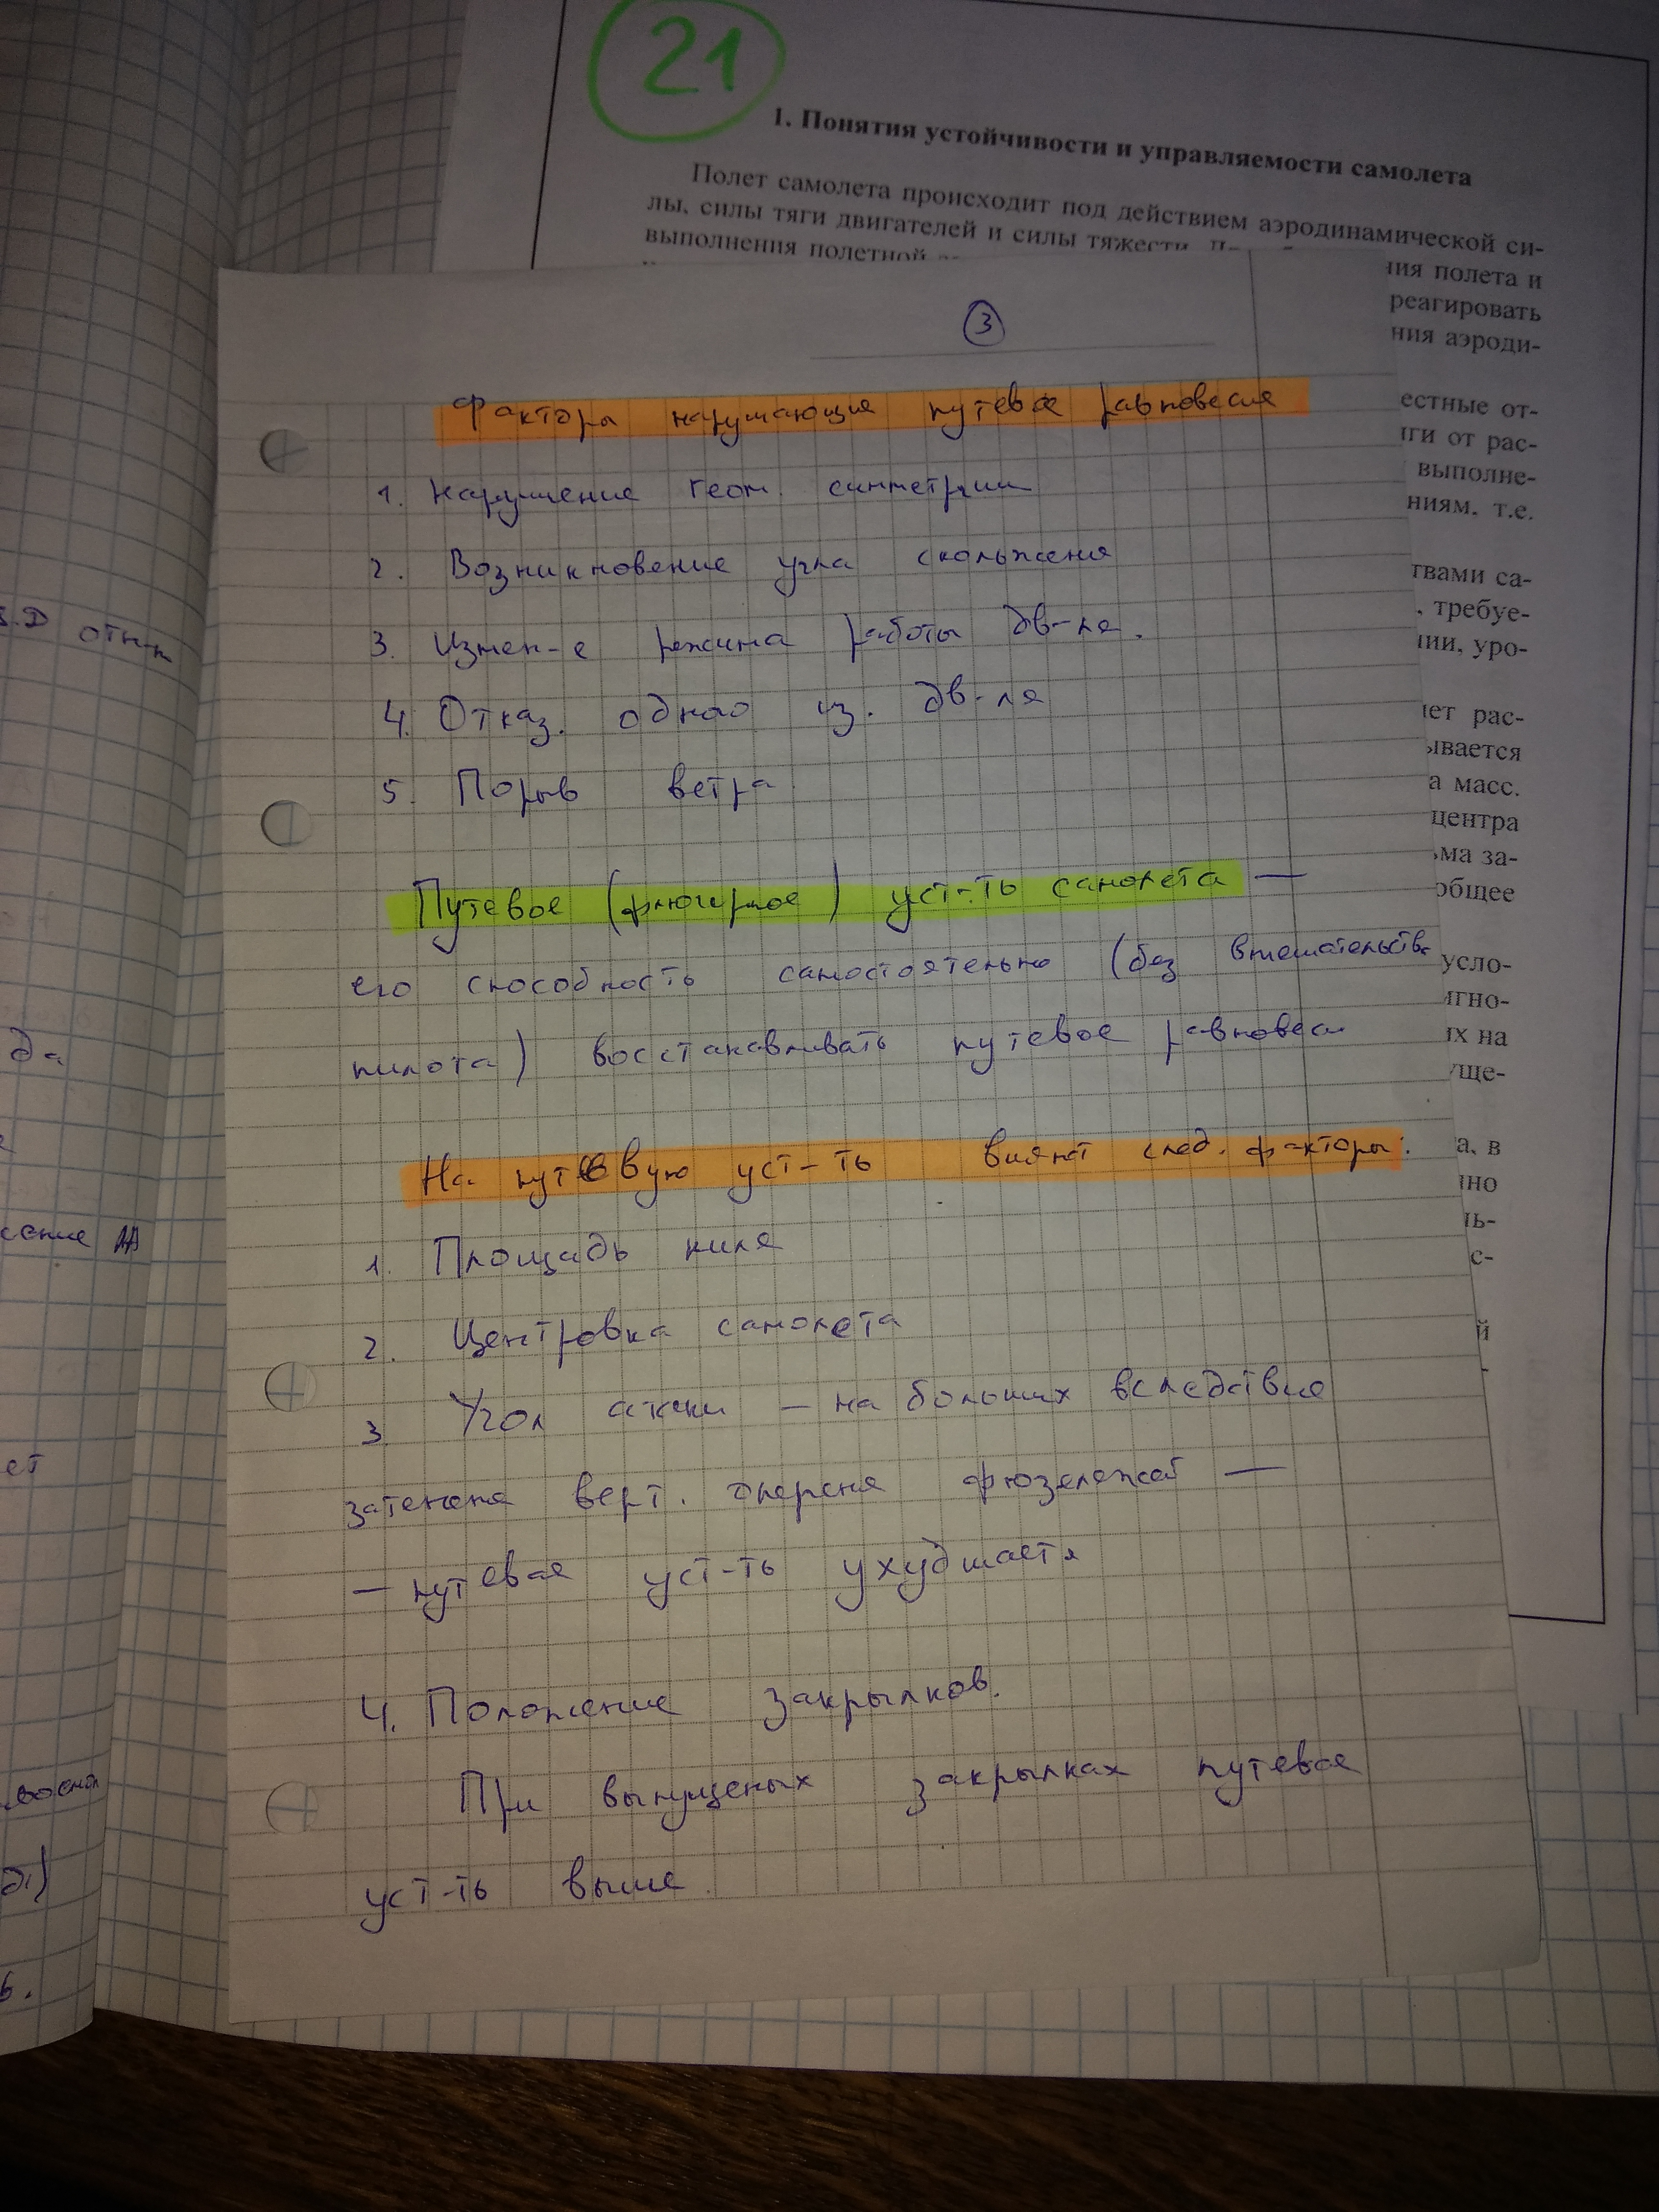 21
1. Понятия устойчивости и управляемости самолета
Полет самолета происходит под действием аэродинамической си-
лы, силы тяги двигателей и силы тяжести.
выполнения полетной
ния полета и
реагировать
ния аэроди-
естные от-
яги от рас-
выполне-
ниям, т.е.
твами са-
, требуе-
нии, уро-
ет рас-
ывается
а масс.
центра
ьма за-
общее
усло-
игно-
их на
уще-
а, в
нно
ль-
с-
й
3
Факторы нарушающие путевое равновесия
1. Нарушение геом. симметрии
2. Возникновение угла скольжения
3. Измен-е режима работы дв-ля.
4. Отказ. одного из. дв-ля
5. Порыв ветра
Путевое (флюгерное) уст-ть самолета —
его способность самостоятельно (без вмешательства
пилота) восстанавливать путевое равновеси
На путевую уст-ть влияют след. факторы:
1. Площадь киля
2. Центровка самолета
3 Угол атаки – на больших вследствие
затенения верт. оперения фюзеляжей —
— путевая уст-ть ухудшается
4. Положение закрылков.
При выпущеных закрылках путевая
уст-ть выше.
да
ет